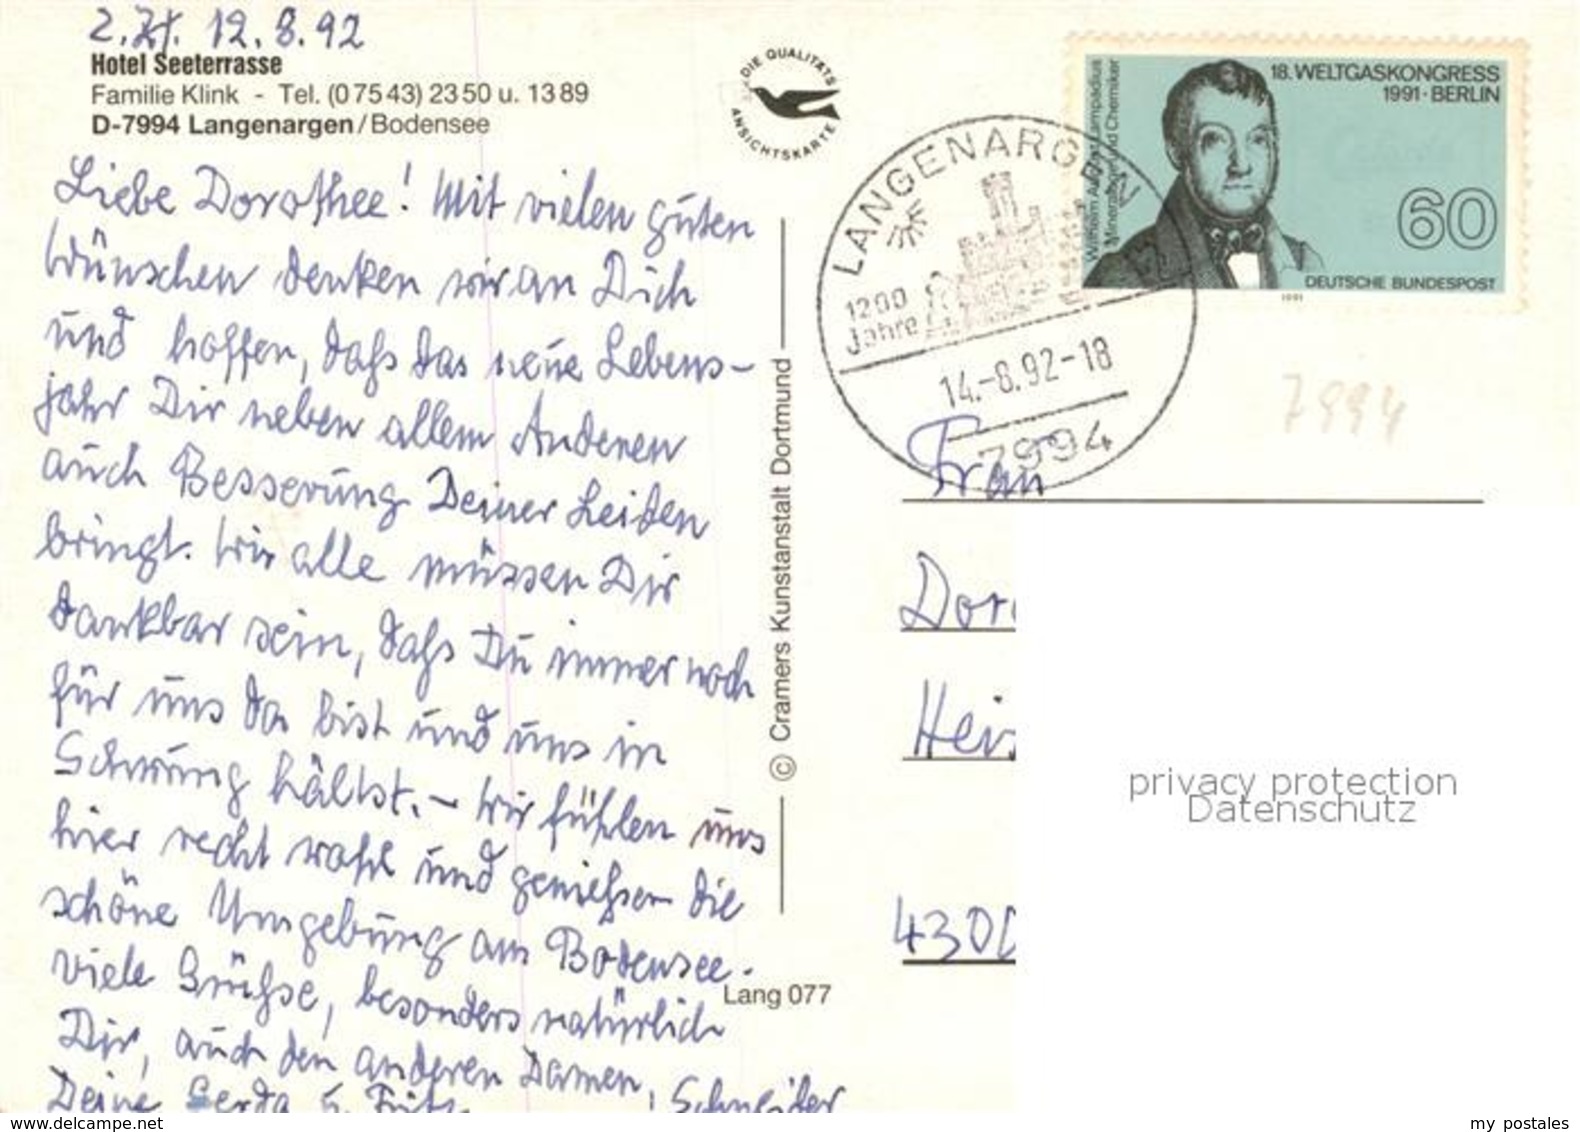 z. Zt. 12.8.92
Hotel Seeterrasse
Familie Klink - Tel. (0 75 43) 23 50 u. 13 89
D-7994 Langenargen/Bodensee
Liebe Dorothee! Mit vielen guten
Wünschen denken wir an Dich
und hoffen, daß das neue Lebens-
jahr Dir neben allem Anderen
auch Besserung Deiner Leiden
bringt. Wir alle müssen Dir
dankbar sein, daß Du immer noch
für uns da bist und uns in
Schwung hältst. – Wir fühlen uns
hier recht wohl und genießen die
schöne Umgebung am Bodensee.
Viele Grüße, besonders natürlich
Dir, auch den anderen Damen,
Deine Gerda u. Fritz Schneider
DIE QUALITÄTS
ANSICHTSKARTE
© Cramers Kunstanstalt Dortmund
Lang 077
LANGENARGEN
1200
Jahre
14.-8.92-18
7994
18. WELTGASKONGRESS
1991 · BERLIN
Wilhelm August Lampadius
Mineraloge und Chemiker
60
DEUTSCHE BUNDESPOST
1991
7994
Frau
Dor
Heis
4300
privacy protection
Datenschutz
delcampe.net
my postales